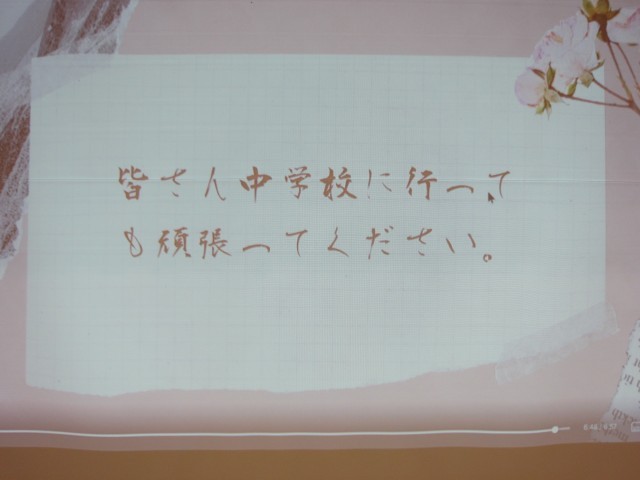 皆さん中学校に行って
も頑張ってください。